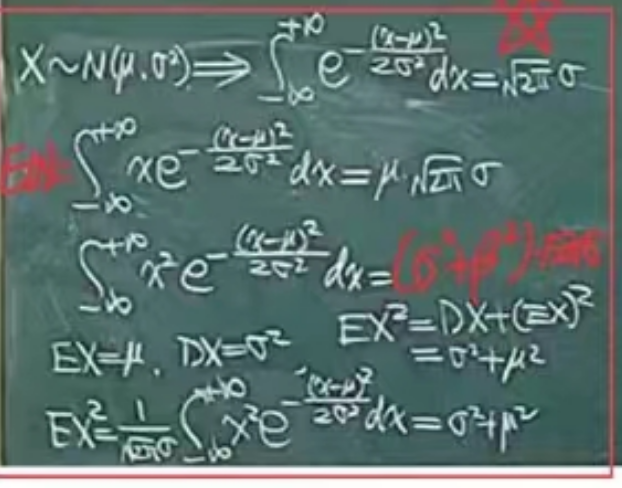 X~N(μ,σ²) ⟹ ∫_{-∞}^{+∞} e^{-\frac{(x-μ)²}{2σ²}} dx = √2π σ
∫_{-∞}^{+∞} x e^{-\frac{(x-μ)²}{2σ²}} dx = μ·√2π σ
∫_{-∞}^{+∞} x² e^{-\frac{(x-μ)²}{2σ²}} dx = (σ²+μ²)·√2πσ
EX=μ, DX=σ²
EX²=DX+(EX)²
=σ²+μ²
EX²=\frac{1}{√2πσ} ∫_{-∞}^{+∞} x² e^{-\frac{(x-μ)²}{2σ²}} dx = σ²+μ²